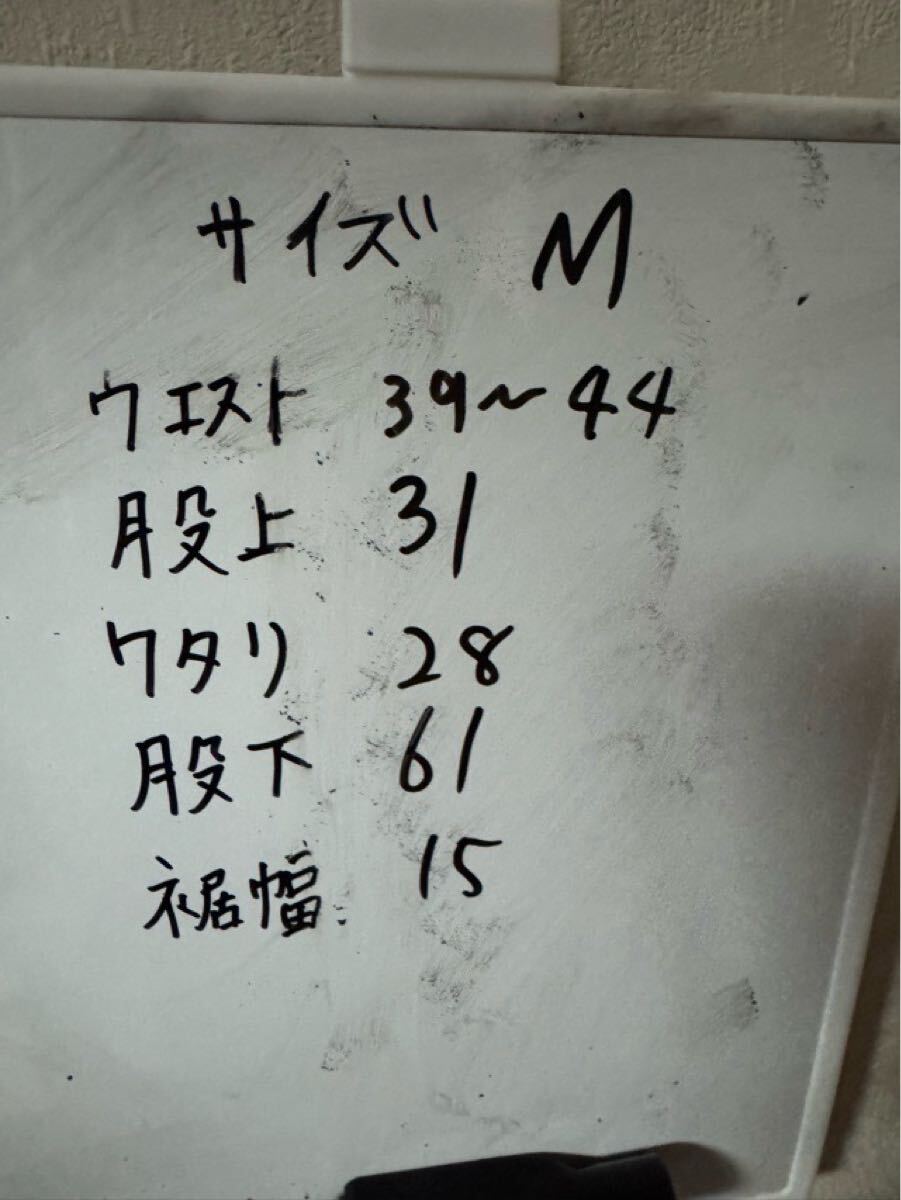 サイズ M
ウエスト 39〜44
股上 31
ワタリ 28
股下 61
裾幅 15